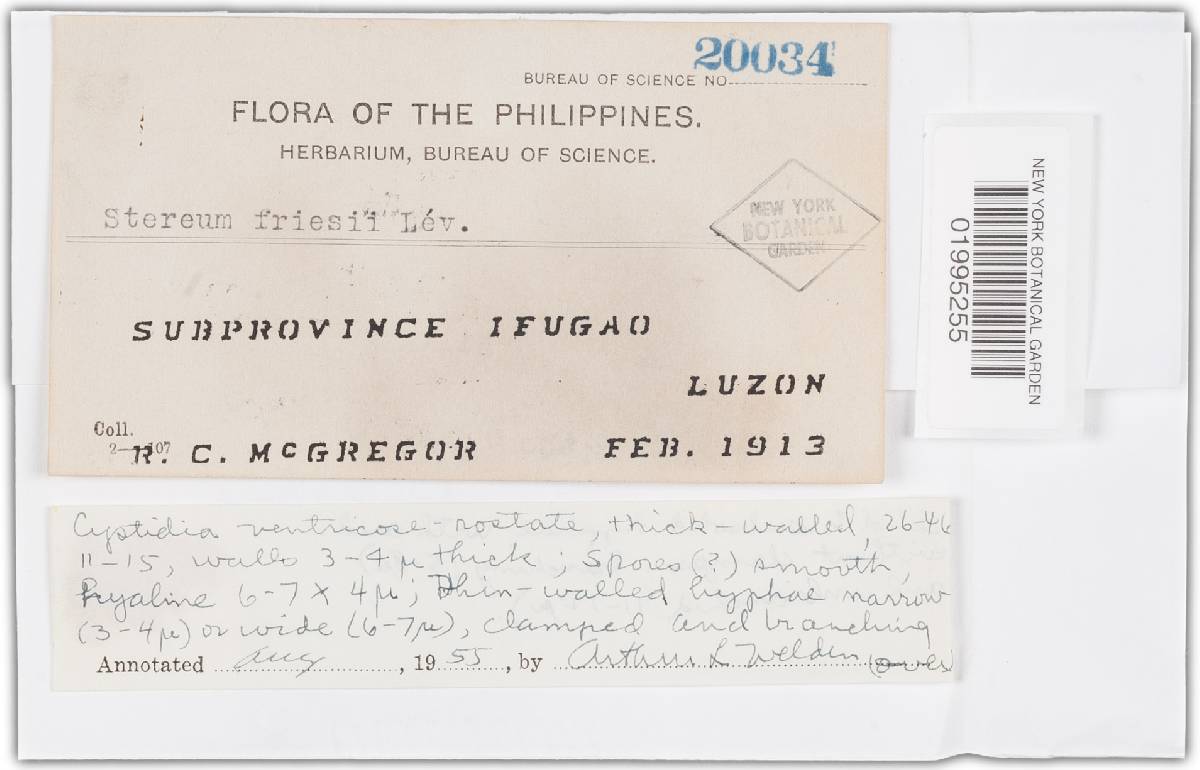 20034
BUREAU OF SCIENCE NO
FLORA OF THE PHILIPPINES.
HERBARIUM, BUREAU OF SCIENCE.
Stereum friesii Lév.
NEW YORK
BOTANICAL
GARDEN
SUBPROVINCE IFUGAO
LUZON
Coll.
R. C. McGREGOR FEB. 1913
NEW YORK BOTANICAL GARDEN
01995255
Cystidia ventricose-rostate, thick-walled, 26-46
11-15, walls 3-4 μ thick; Spores (?) smooth,
hyaline 6-7 X 4μ; thin-walled hyphae narrow
(3-4μ) or wide (6-7μ), clamped and branching
Annotated Aug, 1955, by Arthur L Welden (over)